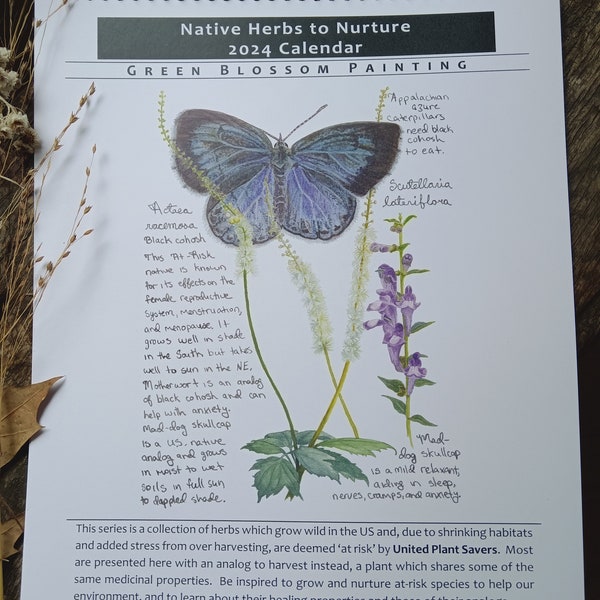 Native Herbs to Nurture
2024 Calendar
Green Blossom Painting
Appalachian
azure
caterpillars
need black
cohosh
to eat.
Scutellaria
lateriflora
Actaea
racemosa
Black cohosh
This At-Risk
native is known
for its effects on the
female reproductive
system, menstruation,
and menopause. It
grows well in shade
in the South but takes
well to sun in the NE.
Motherwort is an analog
of black cohosh and can
help with anxiety.
Mad-dog skullcap
is a U.S. native
analog and grows
in moist to wet
soils in full sun
to dappled shade.
Mad-
dog skullcap
is a mild relaxant,
aiding in sleep,
nerves, cramps, and anxiety.
This series is a collection of herbs which grow wild in the US and, due to shrinking habitats
and added stress from over harvesting, are deemed 'at risk' by United Plant Savers. Most
are presented here with an analog to harvest instead, a plant which shares some of the
same medicinal properties. Be inspired to grow and nurture at-risk species to help our
environment, and to learn about their healing properties and those of their analogs.